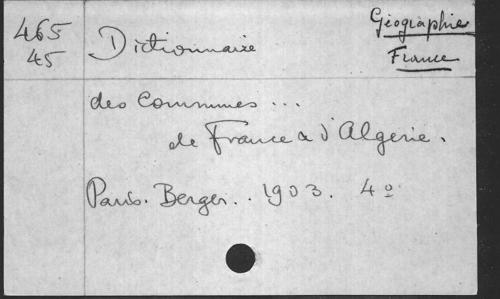 465
45
Géographie
France
Dictionnaire
des Communes ...
de France & d'Algérie.
Paris. Berger.. 1903. 4º